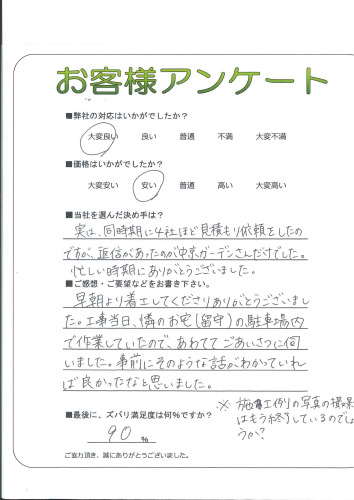 お客様アンケート
■弊社の対応はいかがでしたか?
大変良い 良い 普通 不満 大変不満
■価格はいかがでしたか?
大変安い 安い 普通 高い 大変高い
■当社を選んだ決め手は?
実は、同時期に4社ほど見積もり依頼をしたの
ですが、返信があったのが中京ガーデンさんだけでした。
忙しい時期にありがとうございました。
■ご感想・ご要望などをお書き下さい。
早朝より着工してくださりありがとうございまし
た。工事当日、隣のお宅(留守)の駐車場内
で作業していたので、あわててごあいさつに伺
いました。事前にそのような話がわかっていれ
ば良かったなと思いました。
※ 施工例の写真の撮影
はもう終了しているのでしょ
うか?
■最後に、ズバリ満足度は何%ですか?
90 %
ご協力頂き、誠にありがとうございました。